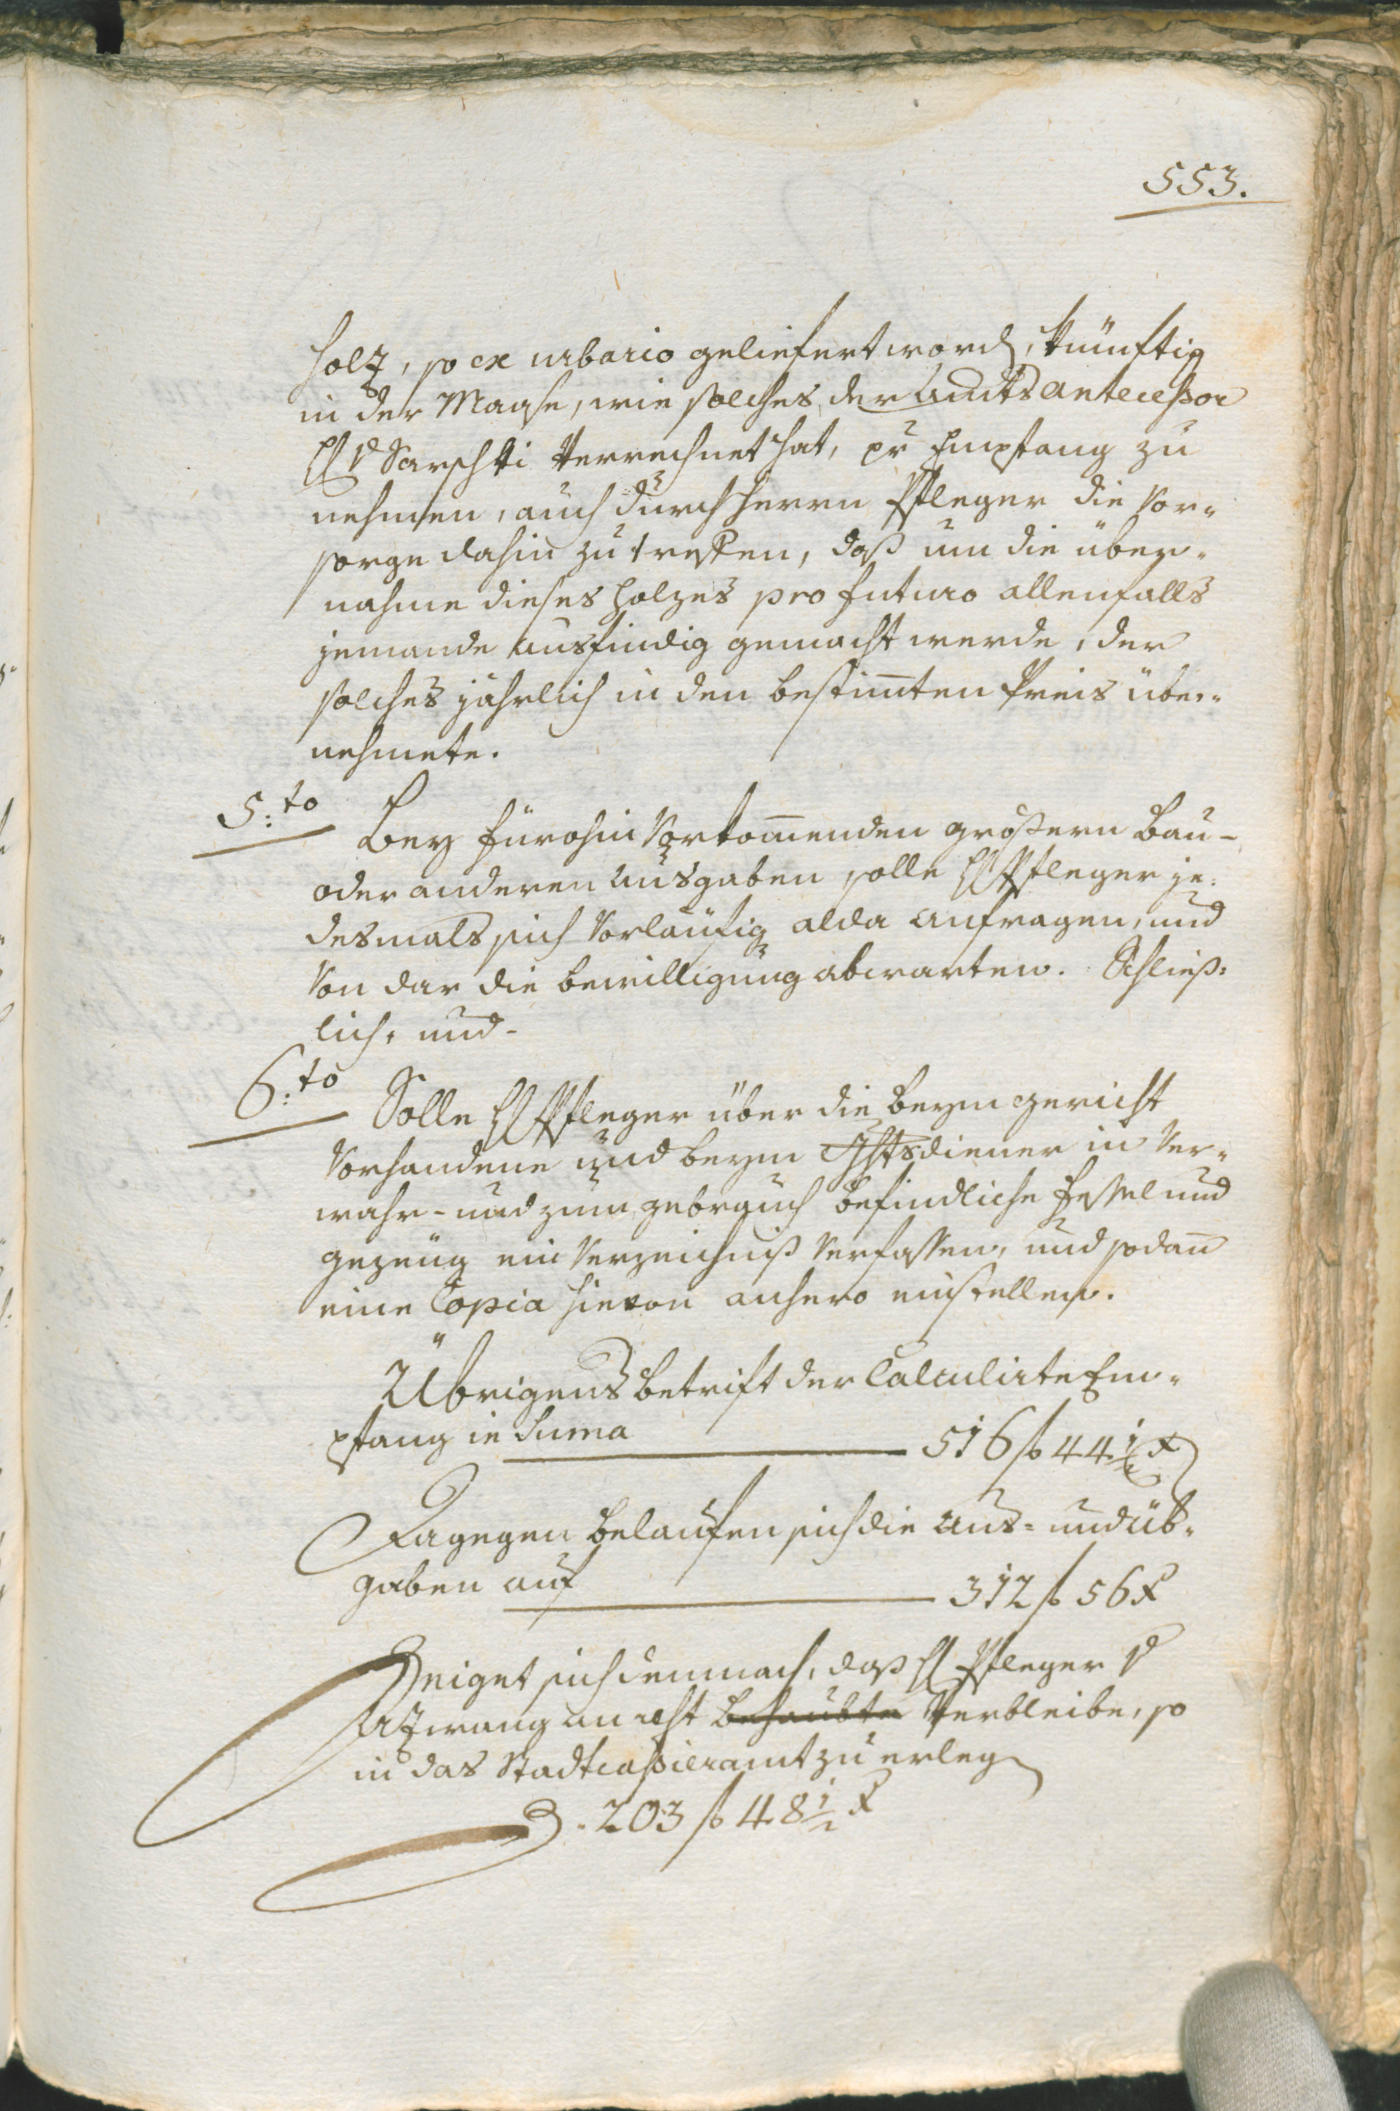 553.
Holz, so ex urbario geliefert word, künftig
in der Maaße, wie solches der Amts antecessor
H v Sarschti Verrechnet hat, pr Empfang zu
nehmen, auch durch Herrn Pfleger die Vor-
sorge dahin zu treffen, daß um die über-
nahme dieses Holzes pro futuro allenfalls
jemande ausfindig gemacht werde, der
solches jährlich in den bestimten Preis über-
nehmete.
5:to Bey fürohin Vorkommenden großern Bau-
oder anderen Ausgaben solle H Pfleger je-
desmals sich Vorläufig alda anfragen, und
Von dar die bewilligung abwarten. Schließ-
lich, und-
6:to Solle H Pfleger über die beym gericht
Vorhandene und beym Ghtsdiener in Ver-
wahr- und zum gebrauch befindliche Fessel und
gezeug ein Verzeichniß Verfassen, und sodan
eine Copia hievon anhero einstellen.
Übrigens betrift der Calculirte Em-
pfang in Suma 516 f 44 1/2 x
Dagegen belaufen sich die Aus- und üb-
gaben auf 312 f 56 x
Zeiget sich demnach, daß H Pfleger v
Atzwang an rest behaubte Verbleibe, so
in das Stadtcassieramt zu erleg
203 f 48 1/2 x